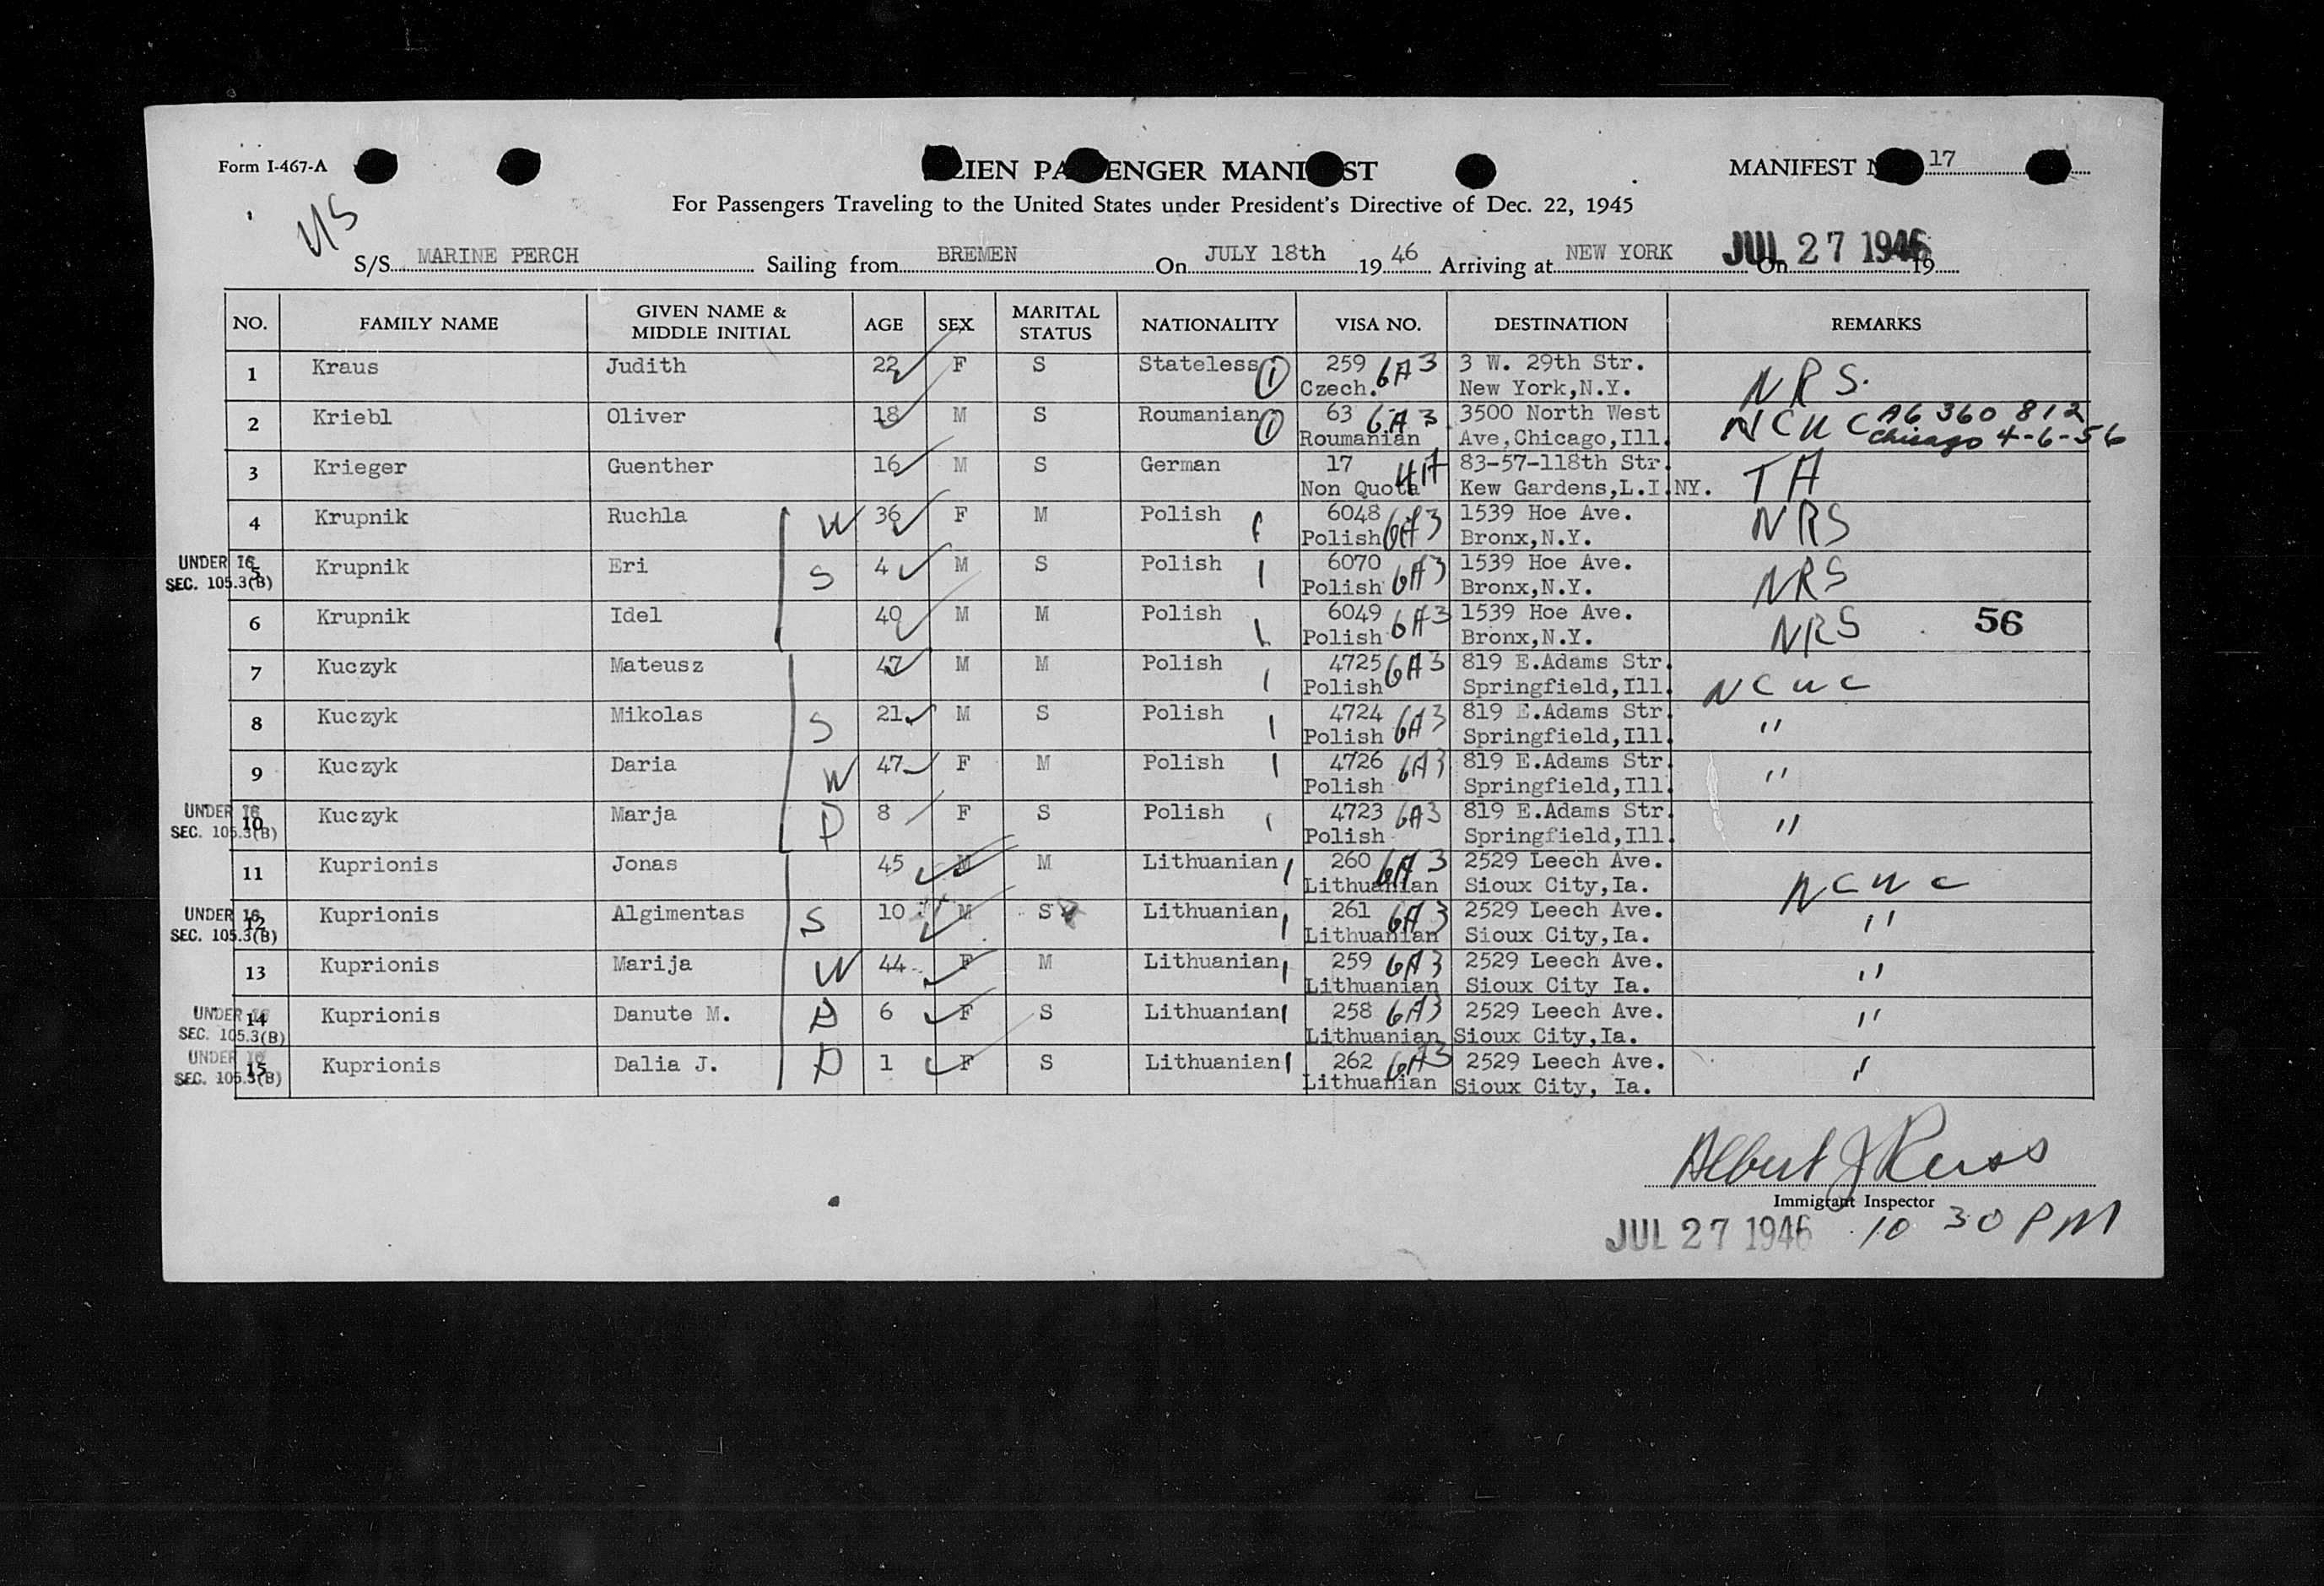 Form I-467-A LIEN PA ENGER MANI ST MANIFEST N 17
For Passengers Traveling to the United States under President's Directive of Dec. 22, 1945
US
S/S MARINE PERCH Sailing from BREMEN On JULY 18th 19 46 Arriving at NEW YORK On JUL 27 1946 19
NO. FAMILY NAME GIVEN NAME & MIDDLE INITIAL AGE SEX MARITAL STATUS NATIONALITY VISA NO. DESTINATION REMARKS
1 Kraus Judith 22 F S Stateless 1 259 6A3 3 W. 29th Str. NRS.
Czech. New York,N.Y.
2 Kriebl Oliver 18 M S Roumanian 1 63 6A3 3500 North West NCWC A6 360 812
Roumanian Ave,Chicago,Ill. Chicago 4-6-56
3 Krieger Guenther 16 M S German 17 4A 83-57-118th Str. TA
Non Quota Kew Gardens,L.I.NY.
4 Krupnik Ruchla W 36 F M Polish 6048 6A3 1539 Hoe Ave. NRS
Polish Bronx,N.Y.
UNDER 16 SEC. 105.3(B)
5 Krupnik Eri S 4 M S Polish 1 6070 6A3 1539 Hoe Ave. NRS
Polish Bronx,N.Y.
6 Krupnik Idel 40 M M Polish 1 6049 6A3 1539 Hoe Ave. NRS 56
Polish Bronx,N.Y.
7 Kuczyk Mateusz 47 M M Polish 1 4725 6A3 819 E.Adams Str. NCWC
Polish Springfield,Ill.
8 Kuczyk Mikolas S 21 M S Polish 1 4724 6A3 819 E.Adams Str. "
Polish Springfield,Ill.
9 Kuczyk Daria W 47 F M Polish 1 4726 6A3 819 E.Adams Str. "
Polish Springfield,Ill.
UNDER 16 SEC. 105.3(B)
10 Kuczyk Marja D 8 F S Polish 1 4723 6A3 819 E.Adams Str. "
Polish Springfield,Ill.
11 Kuprionis Jonas 45 M M Lithuanian 1 260 6A3 2529 Leech Ave. NCWC
Lithuanian Sioux City,Ia.
UNDER 16 SEC. 105.3(B)
12 Kuprionis Algimentas S 10 M S Lithuanian 1 261 6A3 2529 Leech Ave. "
Lithuanian Sioux City,Ia.
13 Kuprionis Marija W 44 F M Lithuanian 1 259 6A3 2529 Leech Ave. "
Lithuanian Sioux City Ia.
UNDER 16 SEC. 105.3(B)
14 Kuprionis Danute M. D 6 F S Lithuanian 1 258 6A3 2529 Leech Ave. "
Lithuanian Sioux City,Ia.
UNDER 16 SEC. 105.3(B)
15 Kuprionis Dalia J. D 1 F S Lithuanian 1 262 6A3 2529 Leech Ave. "
Lithuanian Sioux City, Ia.
Albert J Reiss
Immigrant Inspector
JUL 27 1946 10 30 PM